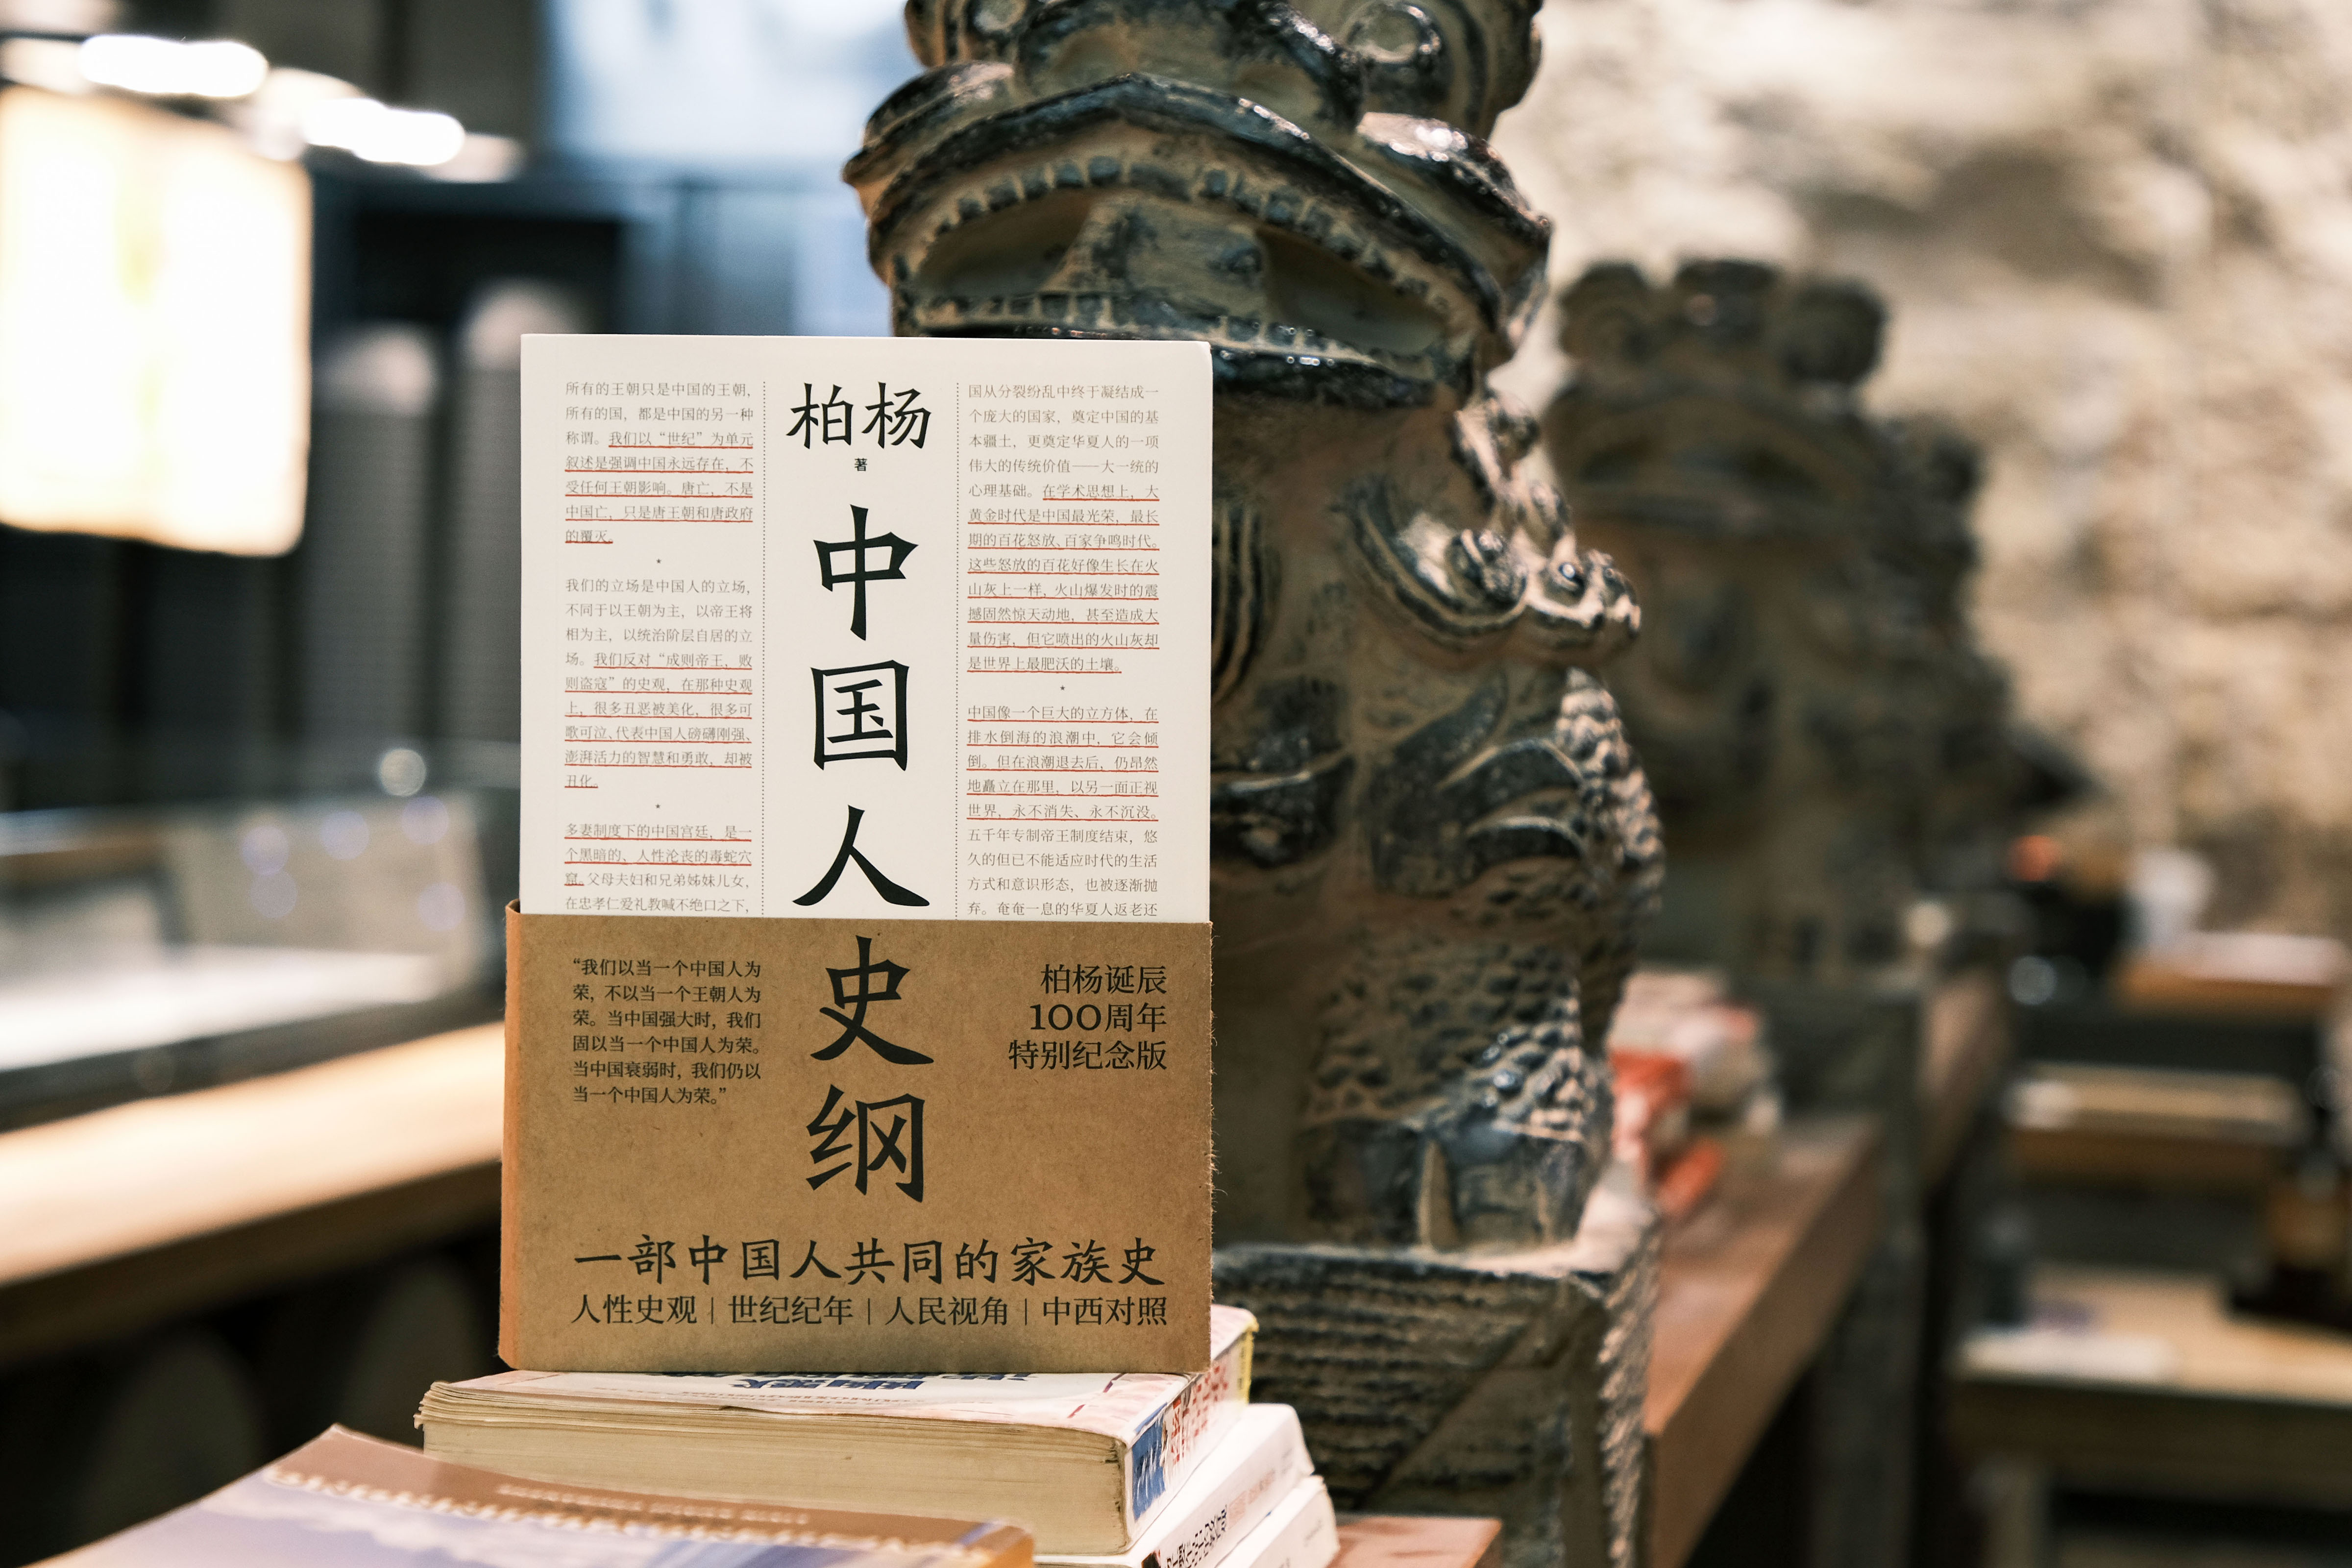 所有的王朝只是中国的王朝，
所有的国，都是中国的另一种
称谓。我们以“世纪”为单元
叙述是强调中国永远存在，不
受任何王朝影响。唐亡，不是
中国亡，只是唐王朝和唐政府
的覆灭。
*
我们的立场是中国人的立场，
不同于以王朝为主，以帝王将
相为主，以统治阶层自居的立
场。我们反对“成则帝王，败
则盗寇”的史观，在那种史观
上，很多丑恶被美化，很多可
歌可泣、代表中国人磅礴刚强、
澎湃活力的智慧和勇敢，却被
丑化。
*
多妻制度下的中国宫廷，是一
个黑暗的、人性沦丧的毒蛇穴
窟。父母夫妇和兄弟姊妹儿女，
在忠孝仁爱礼教喊不绝口之下，
柏杨
著
中
国
人
史
纲
国从分裂纷乱中终于凝结成一
个庞大的国家，奠定中国的基
本疆土，更奠定华夏人的一项
伟大的传统价值——大一统的
心理基础。在学术思想上，大
黄金时代是中国最光荣，最长
期的百花怒放、百家争鸣时代。
这些怒放的百花好像生长在火
山灰上一样，火山爆发时的震
撼固然惊天动地，甚至造成大
量伤害，但它喷出的火山灰却
是世界上最肥沃的土壤。
*
中国像一个巨大的立方体，在
排水倒海的浪潮中，它会倾
倒。但在浪潮退去后，仍昂然
地矗立在那里，以另一面正视
世界，永不消失、永不沉没。
五千年专制帝王制度结束，悠
久的但已不能适应时代的生活
方式和意识形态，也被逐渐抛
弃。奄奄一息的华夏人返老还
“我们以当一个中国人为
荣，不以当一个王朝人为
荣。当中国强大时，我们
固以当一个中国人为荣。
当中国衰弱时，我们仍以
当一个中国人为荣。”
柏杨诞辰
100周年
特别纪念版
一部中国人共同的家族史
人性史观 | 世纪纪年 | 人民视角 | 中西对照